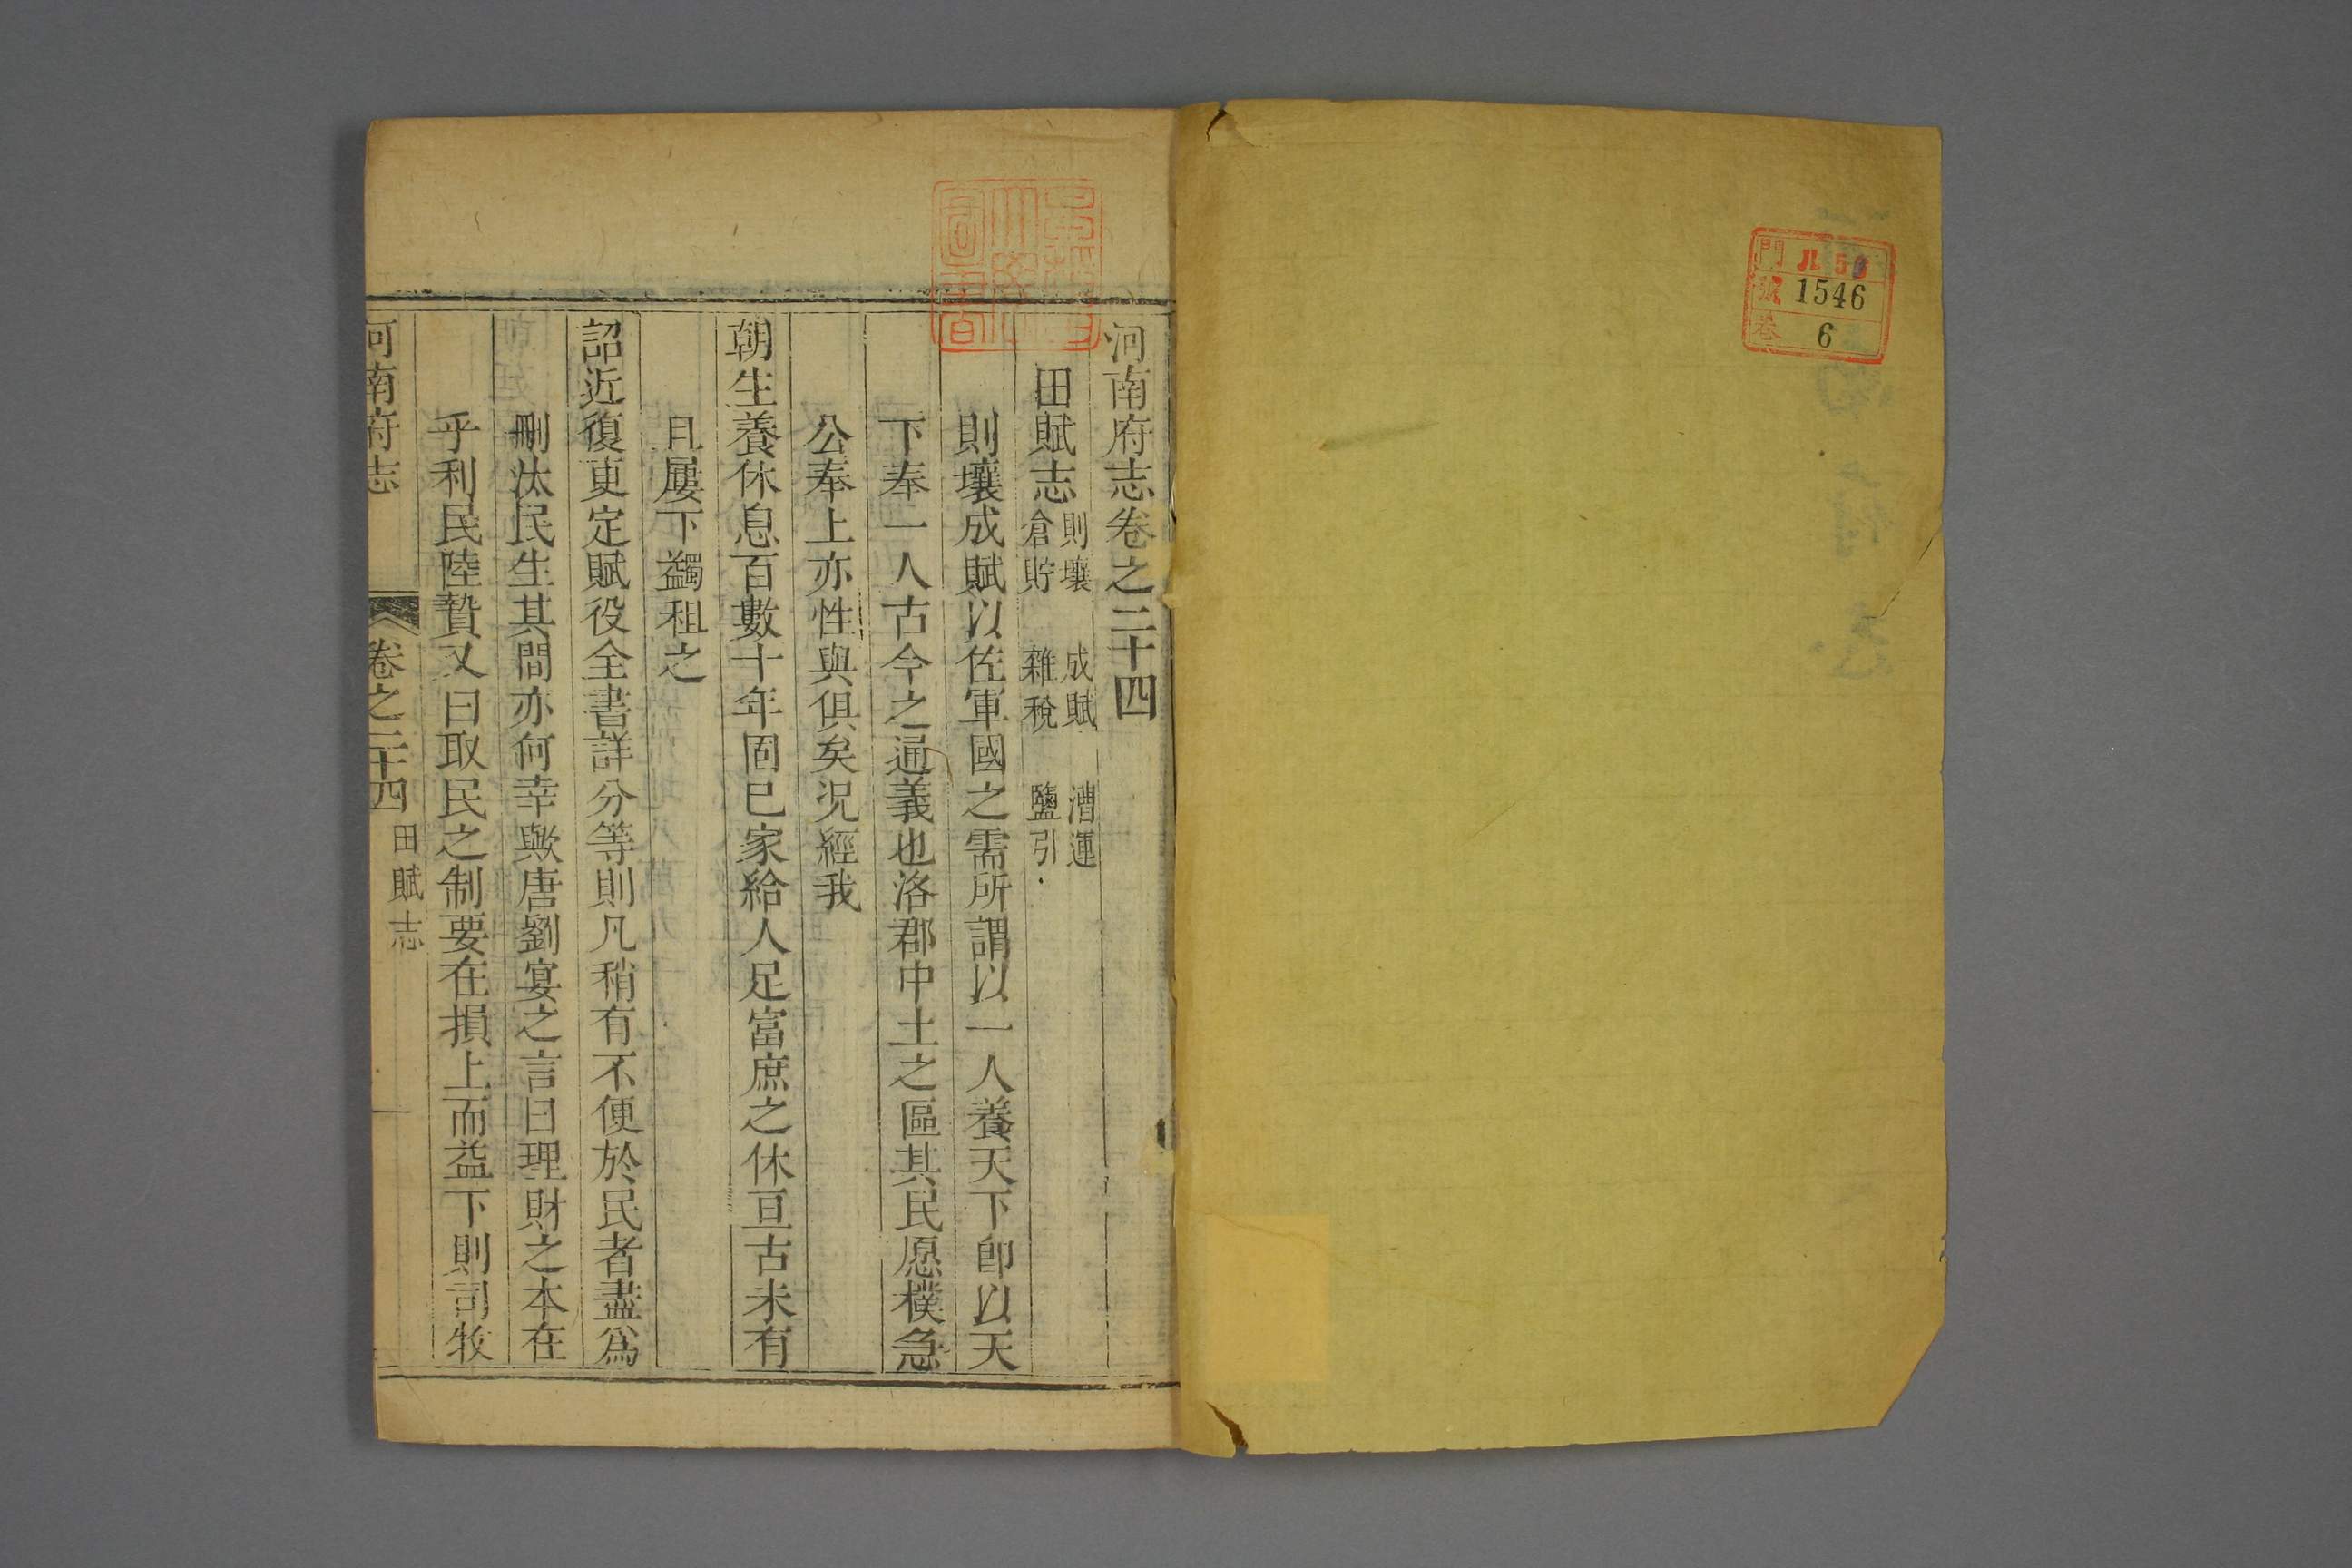 門 ル 5
號 1546
巻 6
河南府志卷之二十四
田賦志 則壤 成賦 漕運
倉貯 雜稅 鹽引
則壤成賦以佐軍國之需所謂以一人養天下卽以天
下奉一人古今之通義也洛郡中土之區其民愿樸急
公奉上亦性與俱矣況經我
朝生養休息百數十年固已家給人足富庶之休亘古未有
且屢下蠲租之
詔近復更定賦役全書詳分等則凡稍有不便於民者盡爲
刪汰民生其間亦何幸歟唐劉宴之言曰理財之本在
乎利民陸贄又曰取民之制要在損上而益下則司牧
河南府志 卷之二十四 田賦志 一